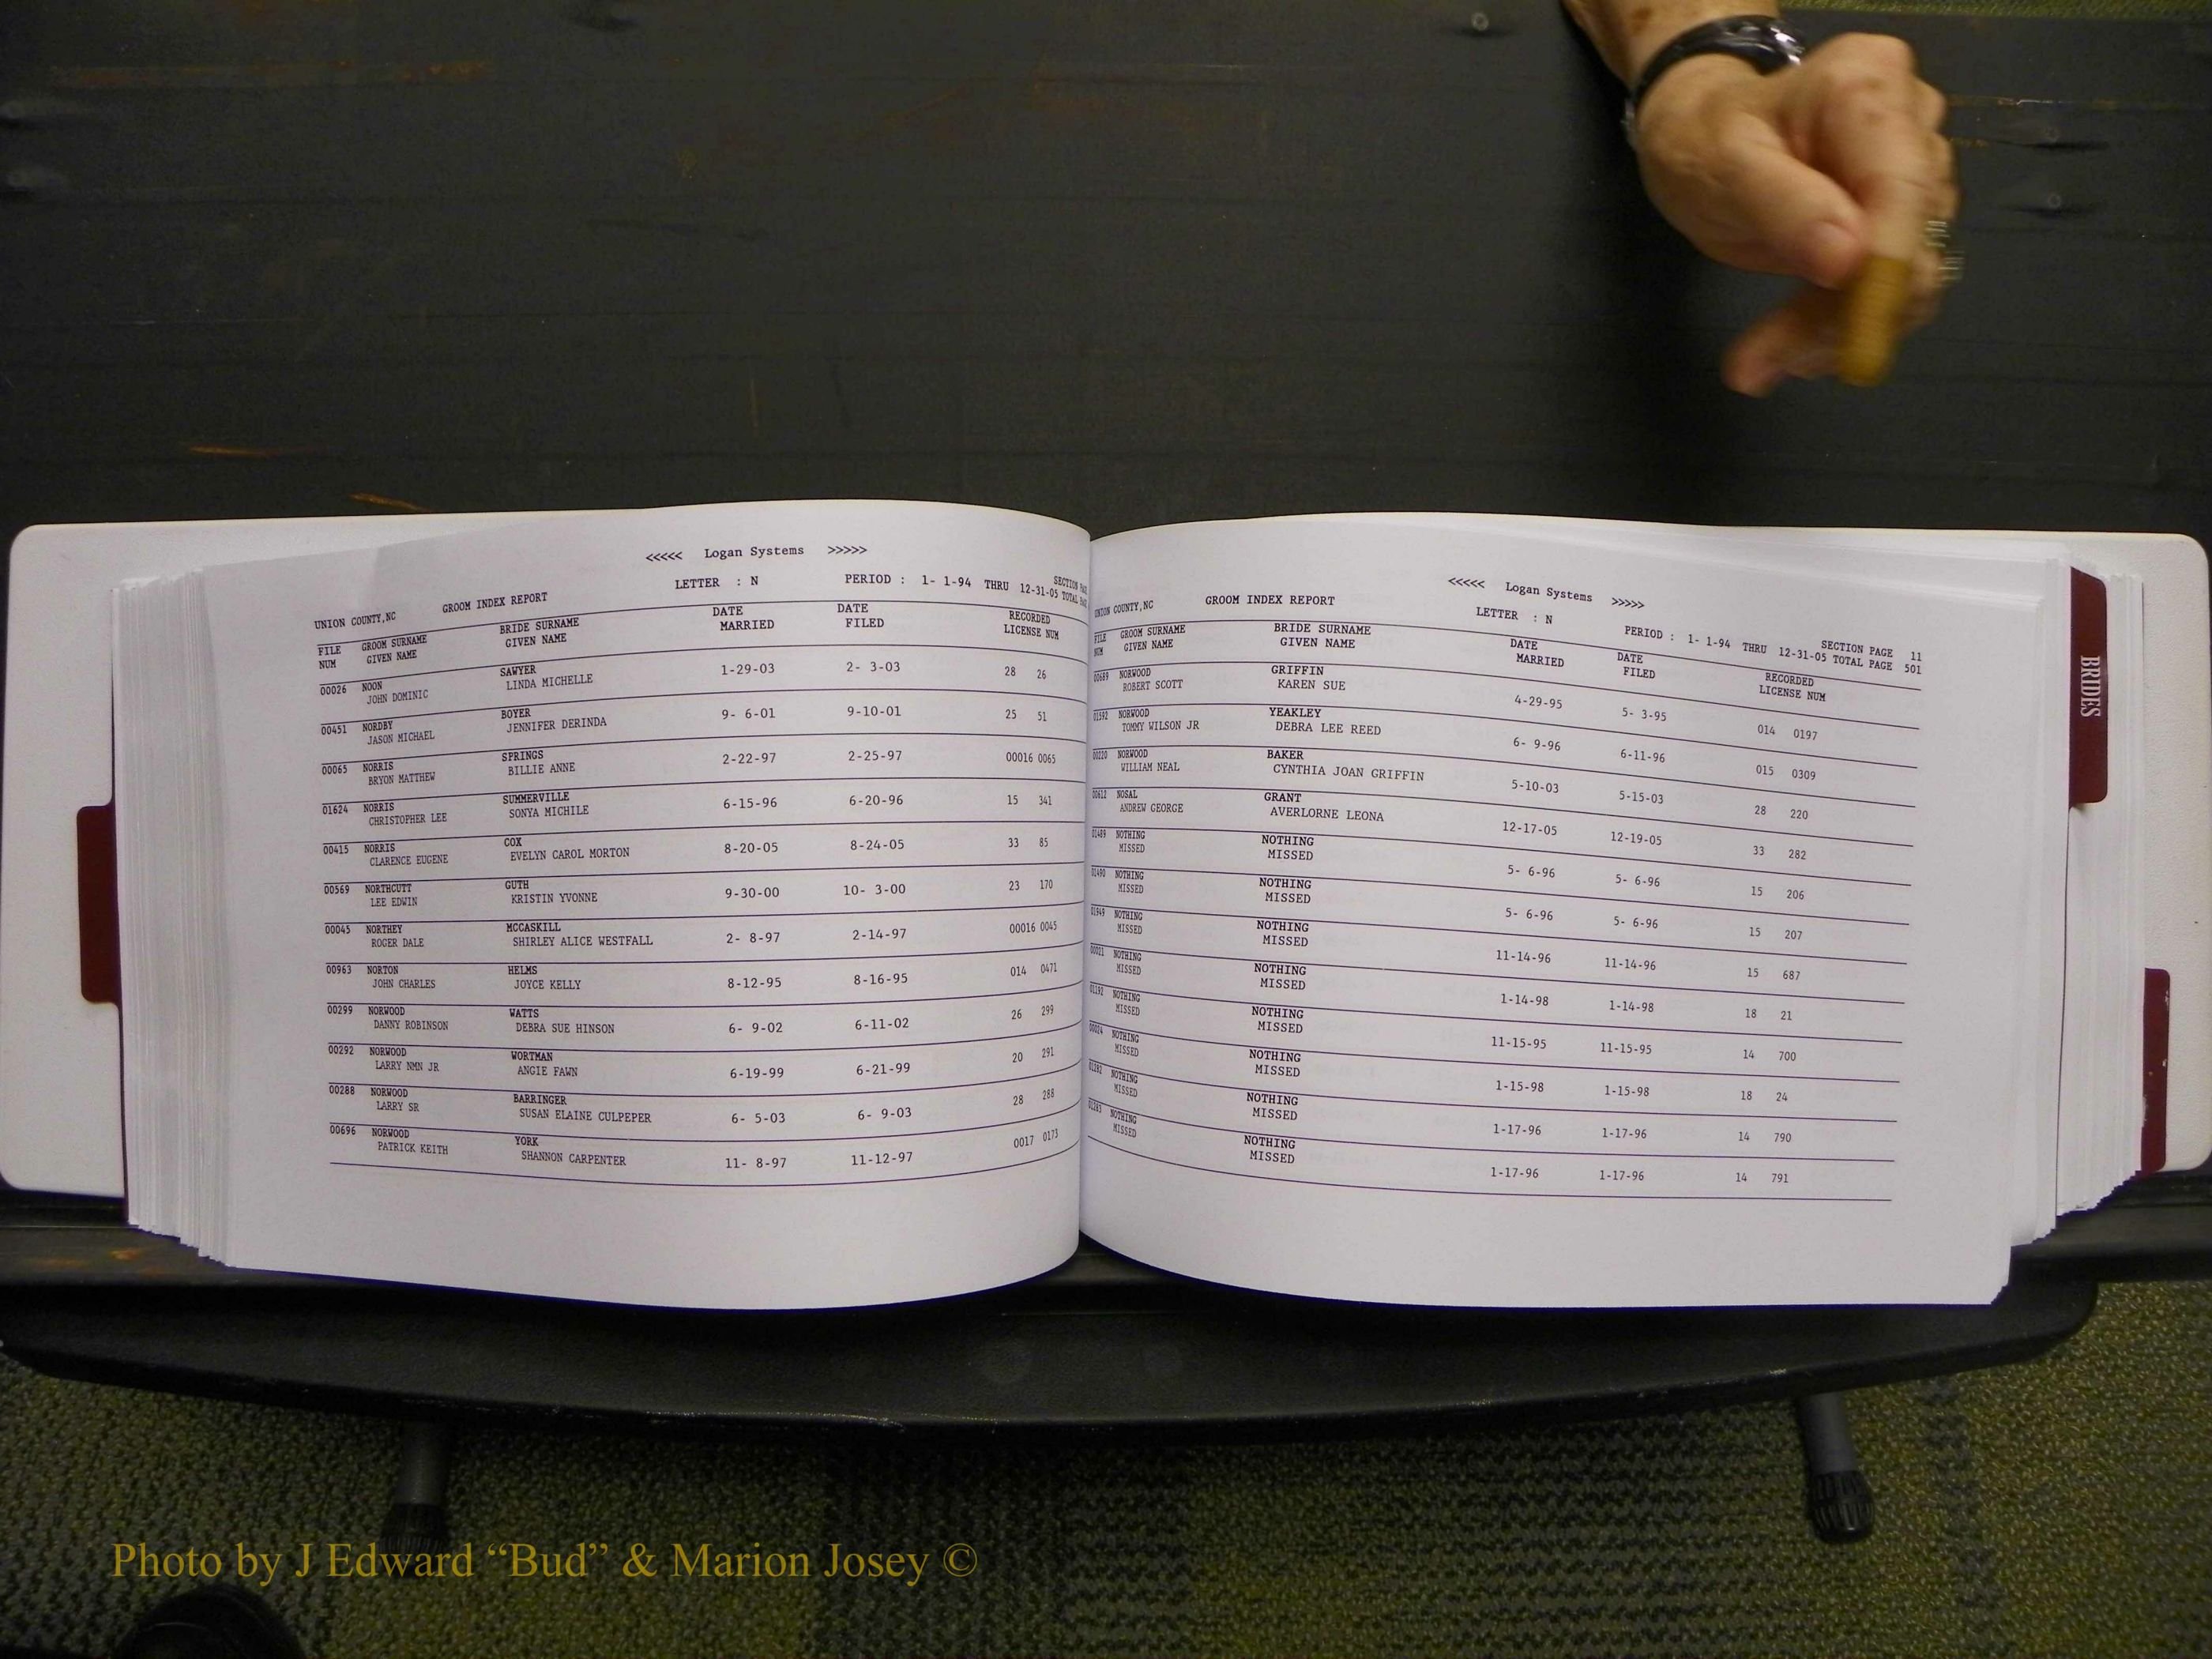 <<<<< Logan Systems >>>>>
UNION COUNTY,NC GROOM INDEX REPORT LETTER : N PERIOD : 1- 1-94 THRU 12-31-05 SECTION
TOTAL
FILE GROOM SURNAME BRIDE SURNAME DATE DATE RECORDED
NUM GIVEN NAME GIVEN NAME MARRIED FILED LICENSE NUM
00026 NOON SAWYER 1-29-03 2- 3-03 28 26
JOHN DOMINIC LINDA MICHELLE
00451 NORDBY BOYER 9- 6-01 9-10-01 25 51
JASON MICHAEL JENNIFER DERINDA
00065 NORRIS SPRINGS 2-22-97 2-25-97 00016 0065
BRYON MATTHEW BILLIE ANNE
01624 NORRIS SUMMERVILLE 6-15-96 6-20-96 15 341
CHRISTOPHER LEE SONYA MICHILE
00415 NORRIS COX 8-20-05 8-24-05 33 85
CLARENCE EUGENE EVELYN CAROL MORTON
00569 NORTHCUTT GUTH 9-30-00 10- 3-00 23 170
LEE EDWIN KRISTIN YVONNE
00045 NORTHEY MCCASKILL 2- 8-97 2-14-97 00016 0045
ROGER DALE SHIRLEY ALICE WESTFALL
00963 NORTON HELMS 8-12-95 8-16-95 014 0471
JOHN CHARLES JOYCE KELLY
00299 NORWOOD WATTS 6- 9-02 6-11-02 26 299
DANNY ROBINSON DEBRA SUE HINSON
00292 NORWOOD WORTMAN 6-19-99 6-21-99 20 291
LARRY NMN JR ANGIE FAWN
00288 NORWOOD BARRINGER 6- 5-03 6- 9-03 28 288
LARRY SR SUSAN ELAINE CULPEPER
00696 NORWOOD YORK 11- 8-97 11-12-97 0017 0173
PATRICK KEITH SHANNON CARPENTER
<<<<< Logan Systems >>>>>
UNION COUNTY,NC GROOM INDEX REPORT LETTER : N PERIOD : 1- 1-94 THRU 12-31-05 SECTION PAGE 11
TOTAL PAGE 501
FILE GROOM SURNAME BRIDE SURNAME DATE DATE RECORDED
NUM GIVEN NAME GIVEN NAME MARRIED FILED LICENSE NUM
00689 NORWOOD GRIFFIN 4-29-95 5- 3-95 014 0197
ROBERT SCOTT KAREN SUE
01592 NORWOOD YEAKLEY 6- 9-96 6-11-96 015 0309
TOMMY WILSON JR DEBRA LEE REED
00220 NORWOOD BAKER 5-10-03 5-15-03 28 220
WILLIAM NEAL CYNTHIA JOAN GRIFFIN
00612 NOSAL GRANT 12-17-05 12-19-05 33 282
ANDREW GEORGE AVERLORNE LEONA
01489 NOTHING NOTHING 5- 6-96 5- 6-96 15 206
MISSED MISSED
01490 NOTHING NOTHING 5- 6-96 5- 6-96 15 207
MISSED MISSED
01949 NOTHING NOTHING 11-14-96 11-14-96 15 687
MISSED MISSED
00021 NOTHING NOTHING 1-14-98 1-14-98 18 21
MISSED MISSED
01192 NOTHING NOTHING 11-15-95 11-15-95 14 700
MISSED MISSED
00024 NOTHING NOTHING 1-15-98 1-15-98 18 24
MISSED MISSED
01282 NOTHING NOTHING 1-17-96 1-17-96 14 790
MISSED MISSED
01283 NOTHING NOTHING 1-17-96 1-17-96 14 791
MISSED MISSED
BRIDES
Photo by J Edward “Bud” & Marion Josey ©